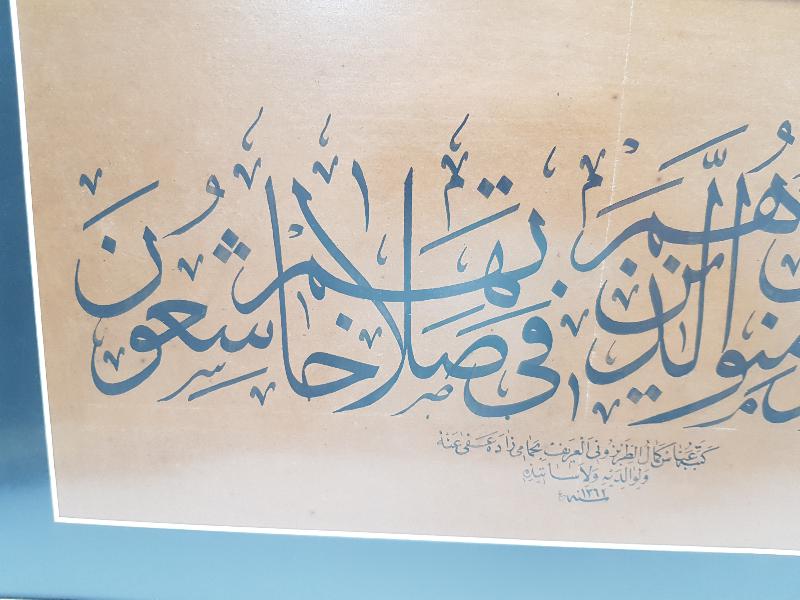 ـمنون الذين هم في صلاتهم خاشعون
كتبه عباس كمال الطربزوني العريف بحمامي زاده عفي عنه
ولوالديه ولأساتيذه
سنه ١٣٦٢